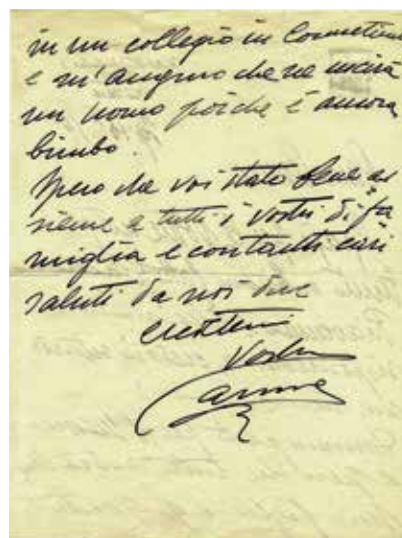 in un collegio in Connecticut
e m'auguro che ne uscirà
un uomo poiche è ancora
bimbo.
Spero che voi state bene as
sieme a tutti i vostri di fa
miglia e con tanti cari
saluti da noi due
credetemi
Vostro